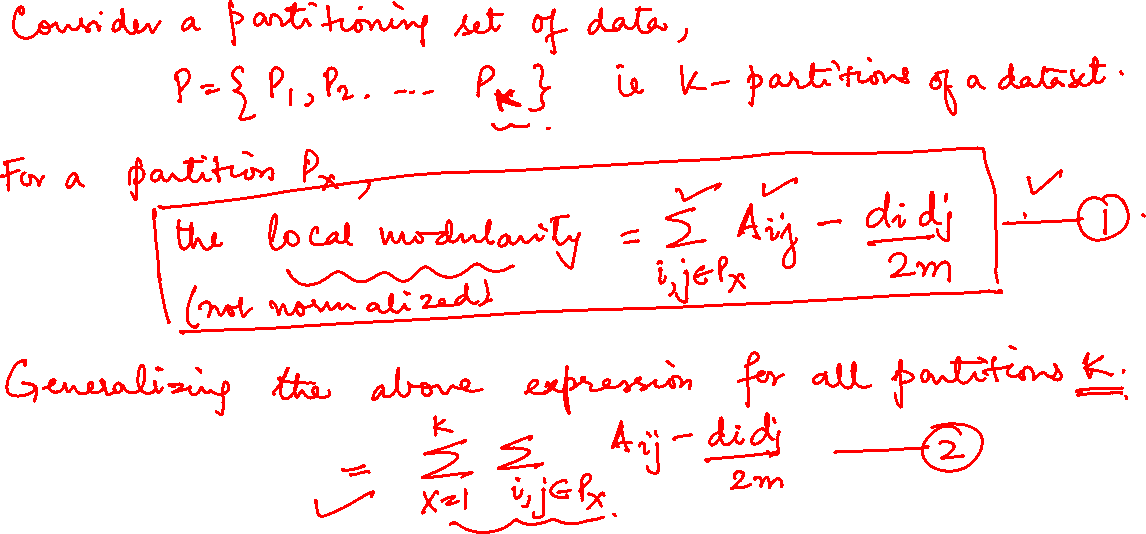 Consider a partitioning set of data,
P = { P1, P2. --- PK } ie K-partitions of a dataset.
For a partition Px,
the local modularity = Σ i,j∈Px Aij - di dj / 2m — ①.
(not normalized)
Generalizing the above expression for all partitions K.
= Σ K X=1 Σ i,j∈Px Aij - di dj / 2m — ②